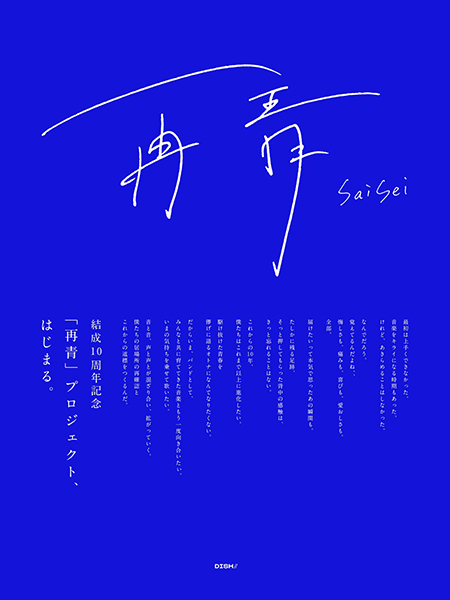 再青
SaiSei
最初は上手くできなかった。
音楽をキライになる時間もあった。
けれど、あきらめることはしなかった。
なんでだろう。
覚えてるんだよね、
悔しさも、痛みも、喜びも、愛おしさも。
全部。
届けたいって本気で思ったあの瞬間も。
たしかに残る足跡。
そっと押してもらった背中の感触は、
きっと忘れることはない。
これからの10年、
僕たちはこれまで以上に進化したい。
駆け抜けた青春を
儚げに語るオトナになんてなりたくない。
だからいま、バンドとして、
みんなと共に育ててきた音楽ともう一度向き合いたい。
いまの気持ちを乗せて歌いたい。
音と音、声と声とが混ざり合い、拡がっていく。
僕たちの居場所の再確認と
これからの道標をつくるんだ。
結成10周年記念
「再青」プロジェクト、
はじまる。
DISH//